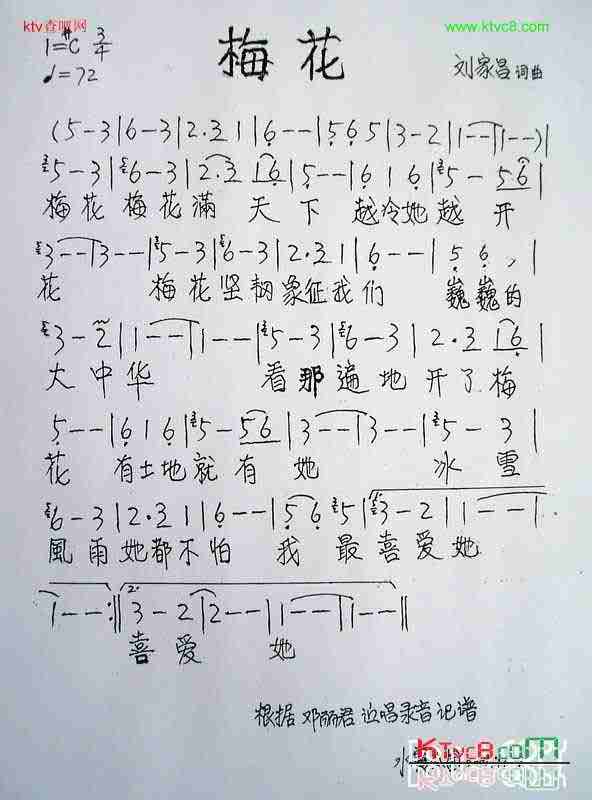 ktv查吧网
可下载 打印
www.ktvc8.com
1=#C 3/4
♩=72
梅花
刘家昌 词曲
(5-3|6-3|2·3 1|6--|5 6 5|3-2|1--|1--)|
5-3|6-3|2·3 16|5--|6 1 6|5-56|
梅花 梅花滿 天 下 越冷她越 开
3--|3--|5-3|6-3|2·3 1|6--|5 6 ,|
花 梅花坚韧象征我们 巍巍的
3-2|1--|1--|5-3|6-3|2·3 16|
大中华 看那遍地开了梅
5--|6 1 6|5-56|3--|3--|5-3|
花 有土地就有 她 冰 雪
6-3|2·3 1|6--|5 6 5|3-2|1--|
風雨她都不怕 我 最喜爱她
1--:‖3-2|2--|1--|1--‖
喜 爱 她
根据 邓丽君 演唱录音记谱
KTvc8.com